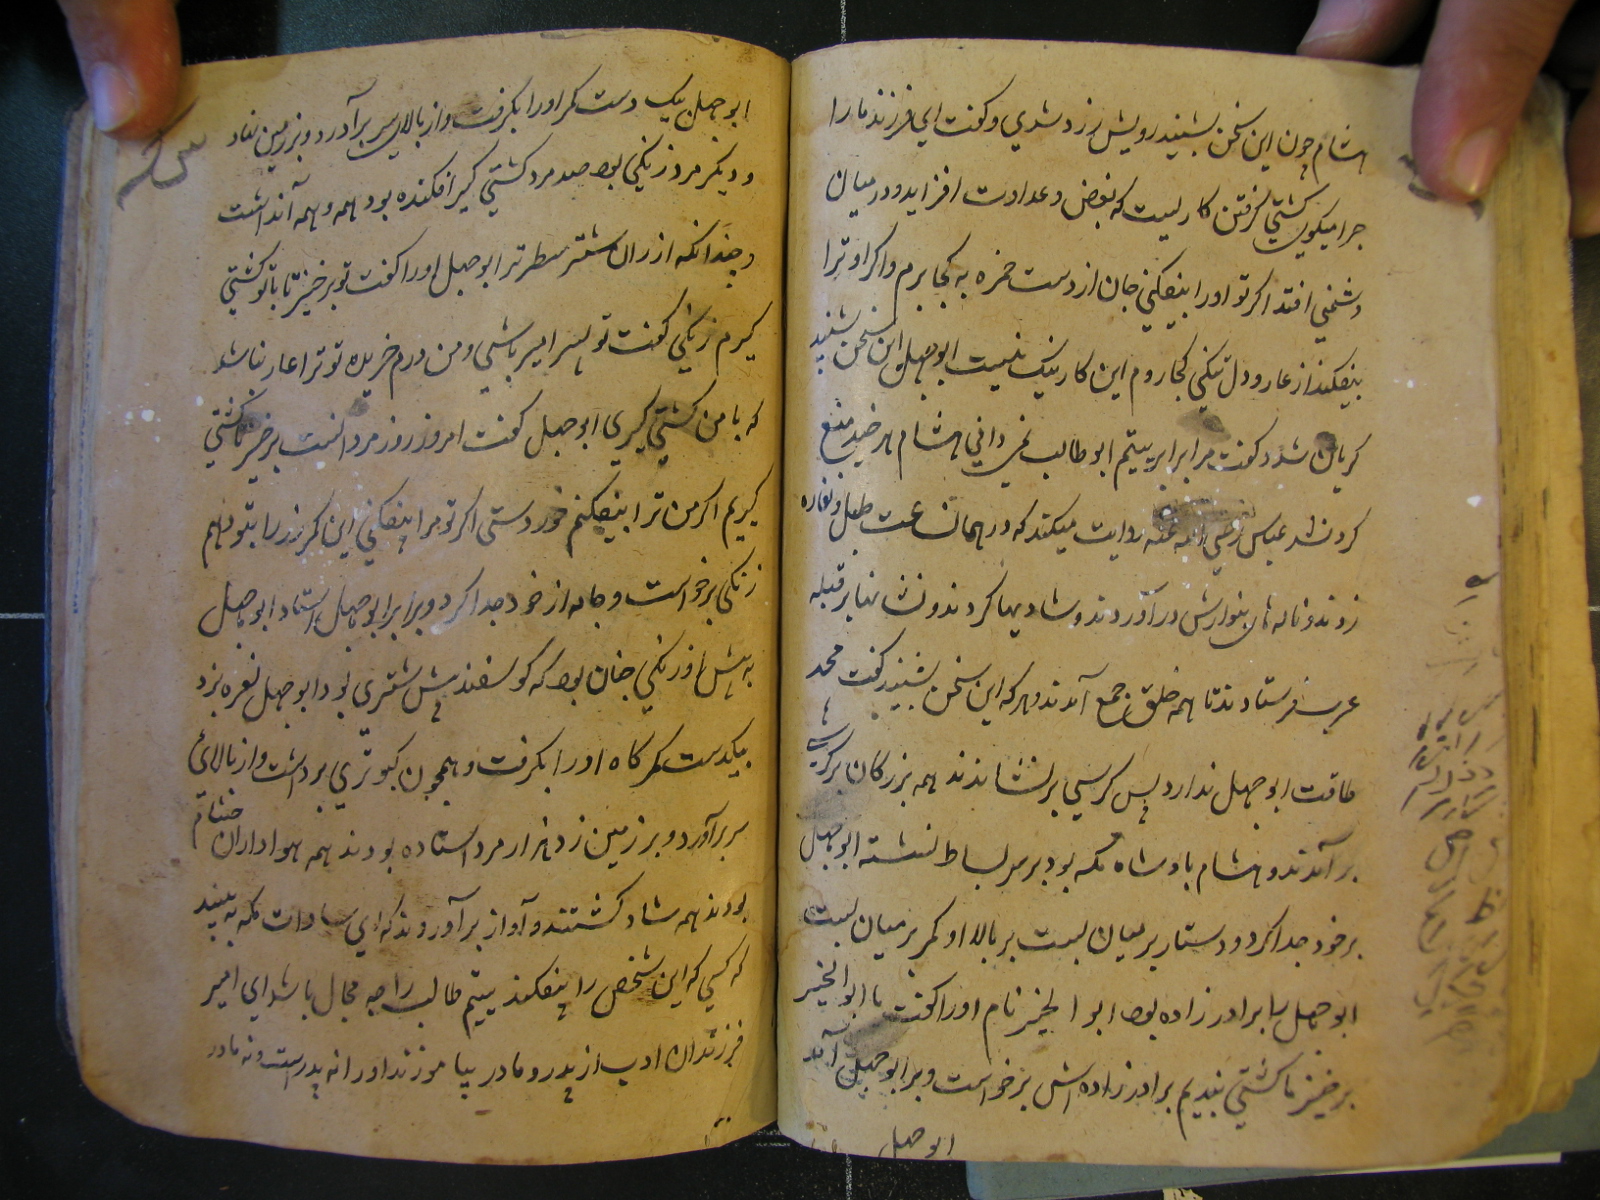 هشام چون این سخن بشنید رویش زرد شدی و کفت ای فرزند ما را
چرا میکوی کشتی کرفتن کاریست که بغض و عداوت افزاید و در میان
دشمنی افتد اکر تو او را بیفکنی جان از دست حمزه به کجا برم و اکر او ترا
بیفکند از عار و دل تنکی کجا روم این کار نیک نیست ابوجهل این سخن بشنید
کریان شد و کفت مرا برابر یتیم ابوطالب نمی دانی هشام هر چند منع
کرد نشد عباس رضی الله عنه روایت میکند که در همان ساعت طبل و نقاره
زدند و ناله های بنوازش در آوردند و شادیها کردند و نشانها بر قبله
عرب فرستادند تا همه خلق جمع آمدند و هر که این سخن بشنید کفت محمد
طاقت ابوجهل ندارد پس کرسی بر نشاندند همه بزرکان بر کرسی
بر آمدند و هشام بادشاه مکه بود بر سر بساط نشسته ابوجهل
بر خود جدا کرد و دستار بر میان بست بر بالا او کمر بر میان بست
ابوجهل را برادر زاده بود ابوالخیر نام او را کفت یا ابوالخیر
بر خیز تا کشتی بندیم برادر زاده اش بر خواست و بر ابوجهل آمد
ابوجهل
ابوجهل بیک دست کمر او را بکرفت و از بالای سر بر آورد و بر زمین نهاد
و دیکر مرد زنکی بود صد مرد کشتی کیر افکنده بود همه و همه آنداشت
و چندانکه از ران شتر سطرتر ابوجهل او را کفت تو بر خیز تا با تو کشتی
کیرم زنکی کفت تو پسر امیر باشی و من درم خریده تو ترا عار نباشد
که با من کشتی کیری ابوجهل کفت امروز روز مردانست بر خیز تا کشتی
کیریم اکر من ترا بیفکنم خورد ستی اکر تو مرا بیفکنی این کمر زر را بتو دهم
زنکی برخواست و جامه از خود جدا کرد و برابر ابوجهل استاد ابوجهل
به پیش او زنکی چنان بود که کوسفند پیش شتری بود ابوجهل نعره بزد
بیکدست کمر کاه او را بکرفت و همچون کبوتری برداشت و از بالای
سر بر آورد و بر زمین زد هزار مرد استاده بودند همه هواداران هشام
بودند همه شاد کشتند و آواز بر آوردند که ای سادات مکه به بینید
که کسی که این شخص را بیفکند یتیم طالب را چه مجال باشد ای امیر
فرزندان ادب از پدر و مادر بیاموزند او را نه پدر است و نه مادر